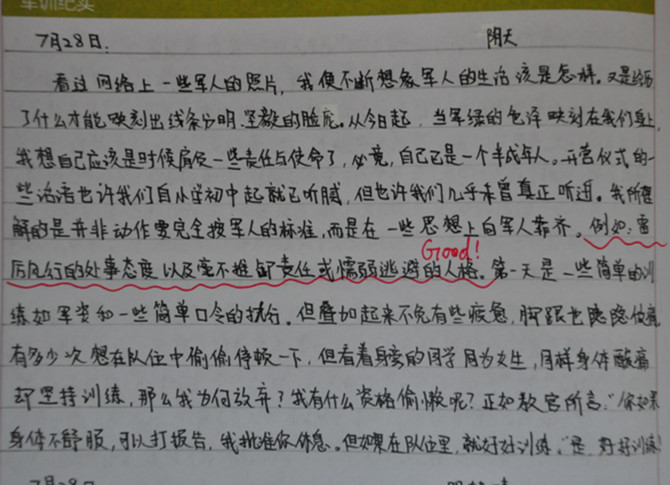 军训纪实
7月28日. 阴天
看过网络上一些军人的照片，我便不断想象军人的生活该是怎样。又是经历
了什么才能映刻出线条分明、坚毅的脸庞。从今日起，当军绿的色泽映刻在我们身上，
我想自己应该是时候肩负一些责任与使命了，必竟，自己已是一个半成年人。开营仪式的一
些话语也许我们自小学初中起就已听腻，但也许我们几乎未曾真正听进。我所理
解的是并非动作要完全按军人的标准，而是在一些思想上向军人靠齐。例如：雷
Good!
厉风行的处事态度以及毫不推卸责任或懦弱逃避的人格。第一天是一些简单的训
练如军姿和一些简单口令的执行。但叠加起来不免有些疲惫，脚跟也隐隐作痛
有多少次想在队伍中偷偷停顿一下，但看着身旁的同学同为女生，同样身体酸痛
却坚持训练，那么我为何放弃？我有什么资格偷懒呢？正如教官所言：“你如果
身体不舒服，可以打报告，我批准你休息。但如果在队伍里，就好好训练。”是，好好训练！
7月29日